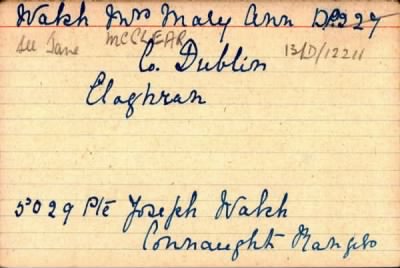 Walsh Mrs Mary Ann DP227
See Jane McCLEAR 13/D/12211
Co. Dublin
Cloghran
5029 Pte Joseph Walsh
Connaught Rangers